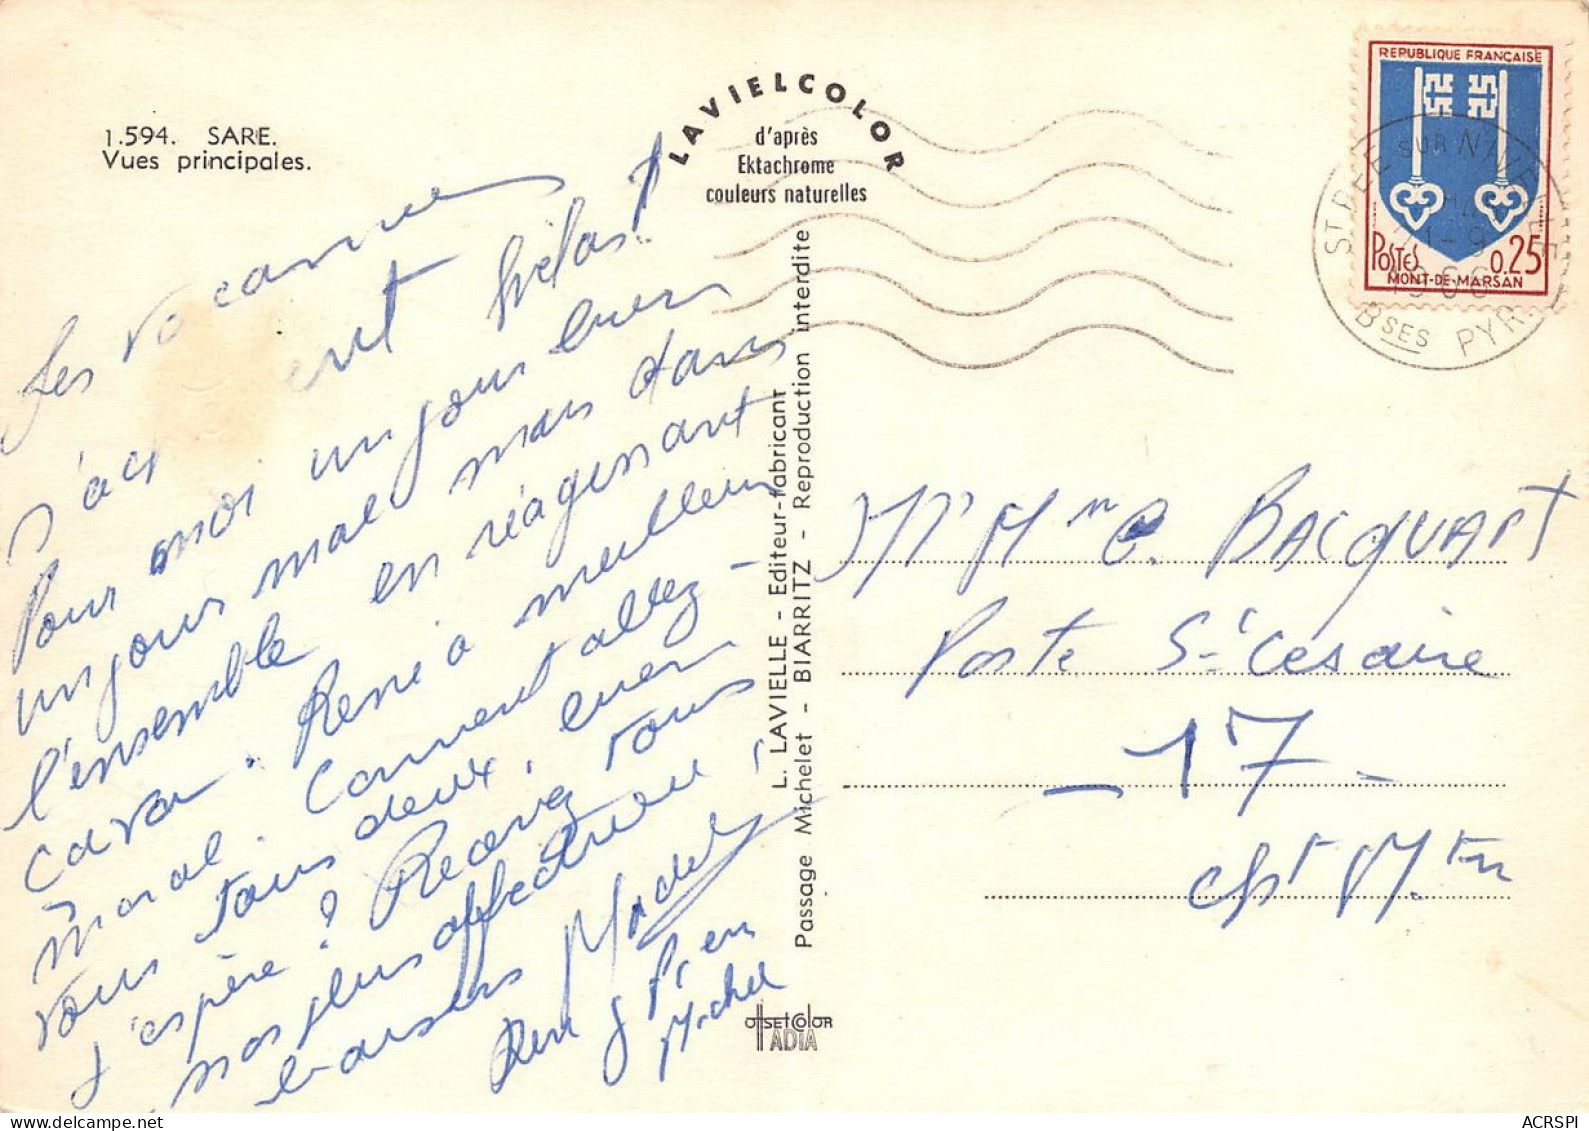 1.594. SARE.
Vues principales.
LAVIELCOLOR
d'après
Ektachrome
couleurs naturelles
REPUBLIQUE FRANÇAISE
POSTES 0.25
MONT-DE-MARSAN
ST PEE SUR NIVELLE
1966
BSES PYR
Les vacances
s'ac vent hélas!
Pour moi un jour bien
un jour mal mais dans
l'ensemble en réagissant
ça va. René a meilleur
moral. Comment allez-
vous tous deux, bien
j'espère? Recevez tous
nos plus affectueux
baisers
René Pierre
Michel
L. LAVIELLE - Editeur-fabricant
Passage Michelet - BIARRITZ - Reproduction interdite
OFFSETCOLOR
IADIA
Mr Mme C. BACQUART
Poste St Césaire
- 17 -
Cht Mtm
ACRSPI